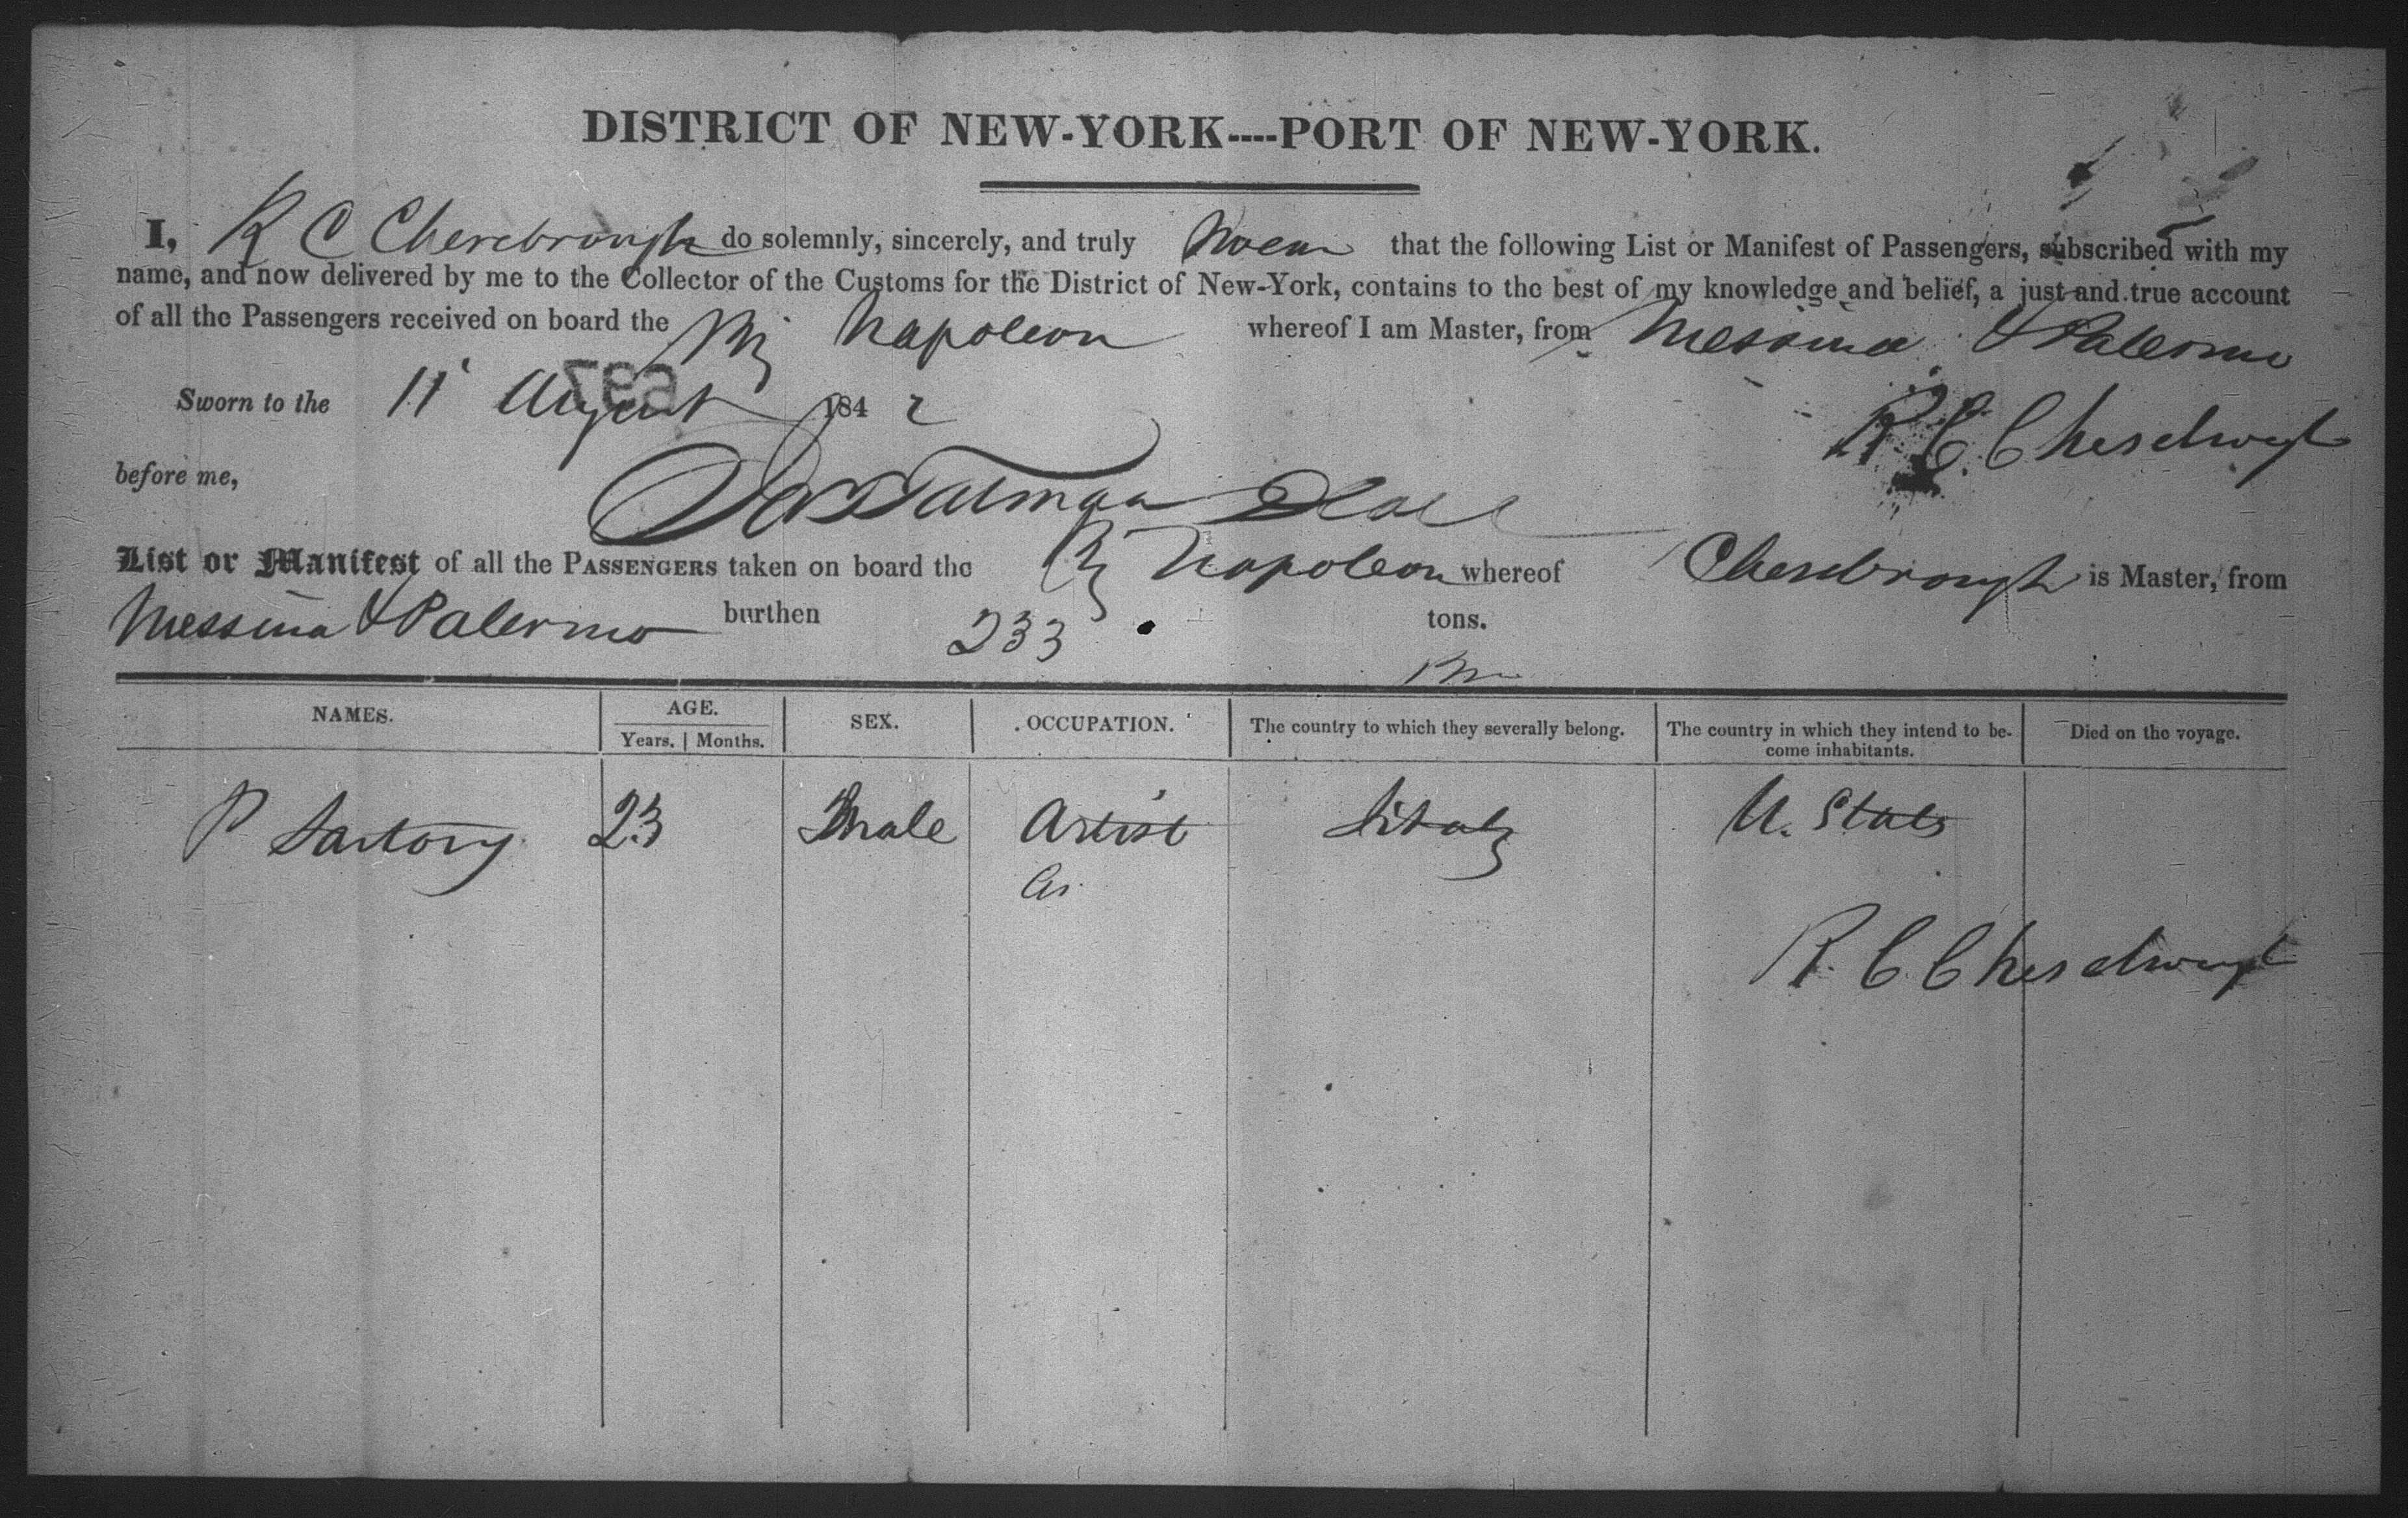 DISTRICT OF NEW-YORK----PORT OF NEW-YORK.
I, R C Chesebrough do solemnly, sincerely, and truly Swear that the following List or Manifest of Passengers, subscribed with my
name, and now delivered by me to the Collector of the Customs for the District of New-York, contains to the best of my knowledge and belief, a just and true account
of all the Passengers received on board the Brig Napoleon whereof I am Master, from Messina & Palermo
Sworn to the 11 August 1842
R C Chesebrough
before me,
List or Manifest of all the PASSENGERS taken on board the Brig Napoleon whereof Chesebrough is Master, from
Messina & Palermo burthen 233 tons.
NAMES. AGE. SEX. OCCUPATION. The country to which they severally belong. The country in which they intend to be- Died on the voyage.
Years. | Months. come inhabitants.
P Sartory 23 Male Artist Sitaly U. States
R. C Chesebrough